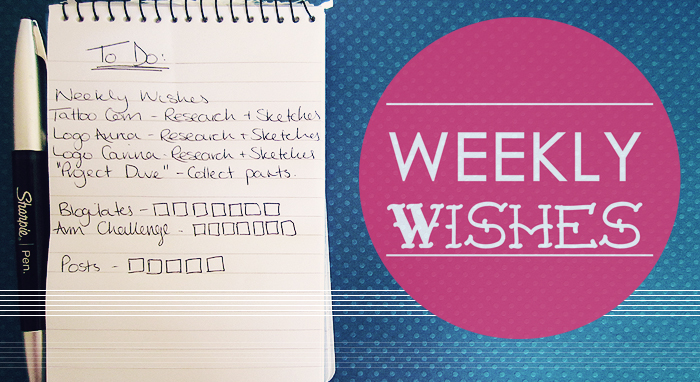 To Do:
Weekly Wishes
Tattoo - Research + Sketches
Logo Anna - Research + Sketches
Logo Carina - Research + Sketches
"Project - Collect
Blogilates -
Arm Challenge -
Posts -
Sharpie. Pen.
WEEKLY
WISHES